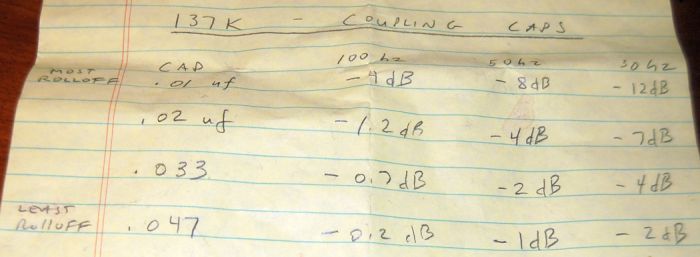 137K - COUPLING CAPS
CAP 100 hz 50hz 30hz
MOST ROLLOFF .01 uf -4dB -8dB -12dB
.02 uf -1.2dB -4dB -7dB
.033 -0.7dB -2dB -4dB
LEAST ROllOFF .047 -0.2dB -1dB -2dB